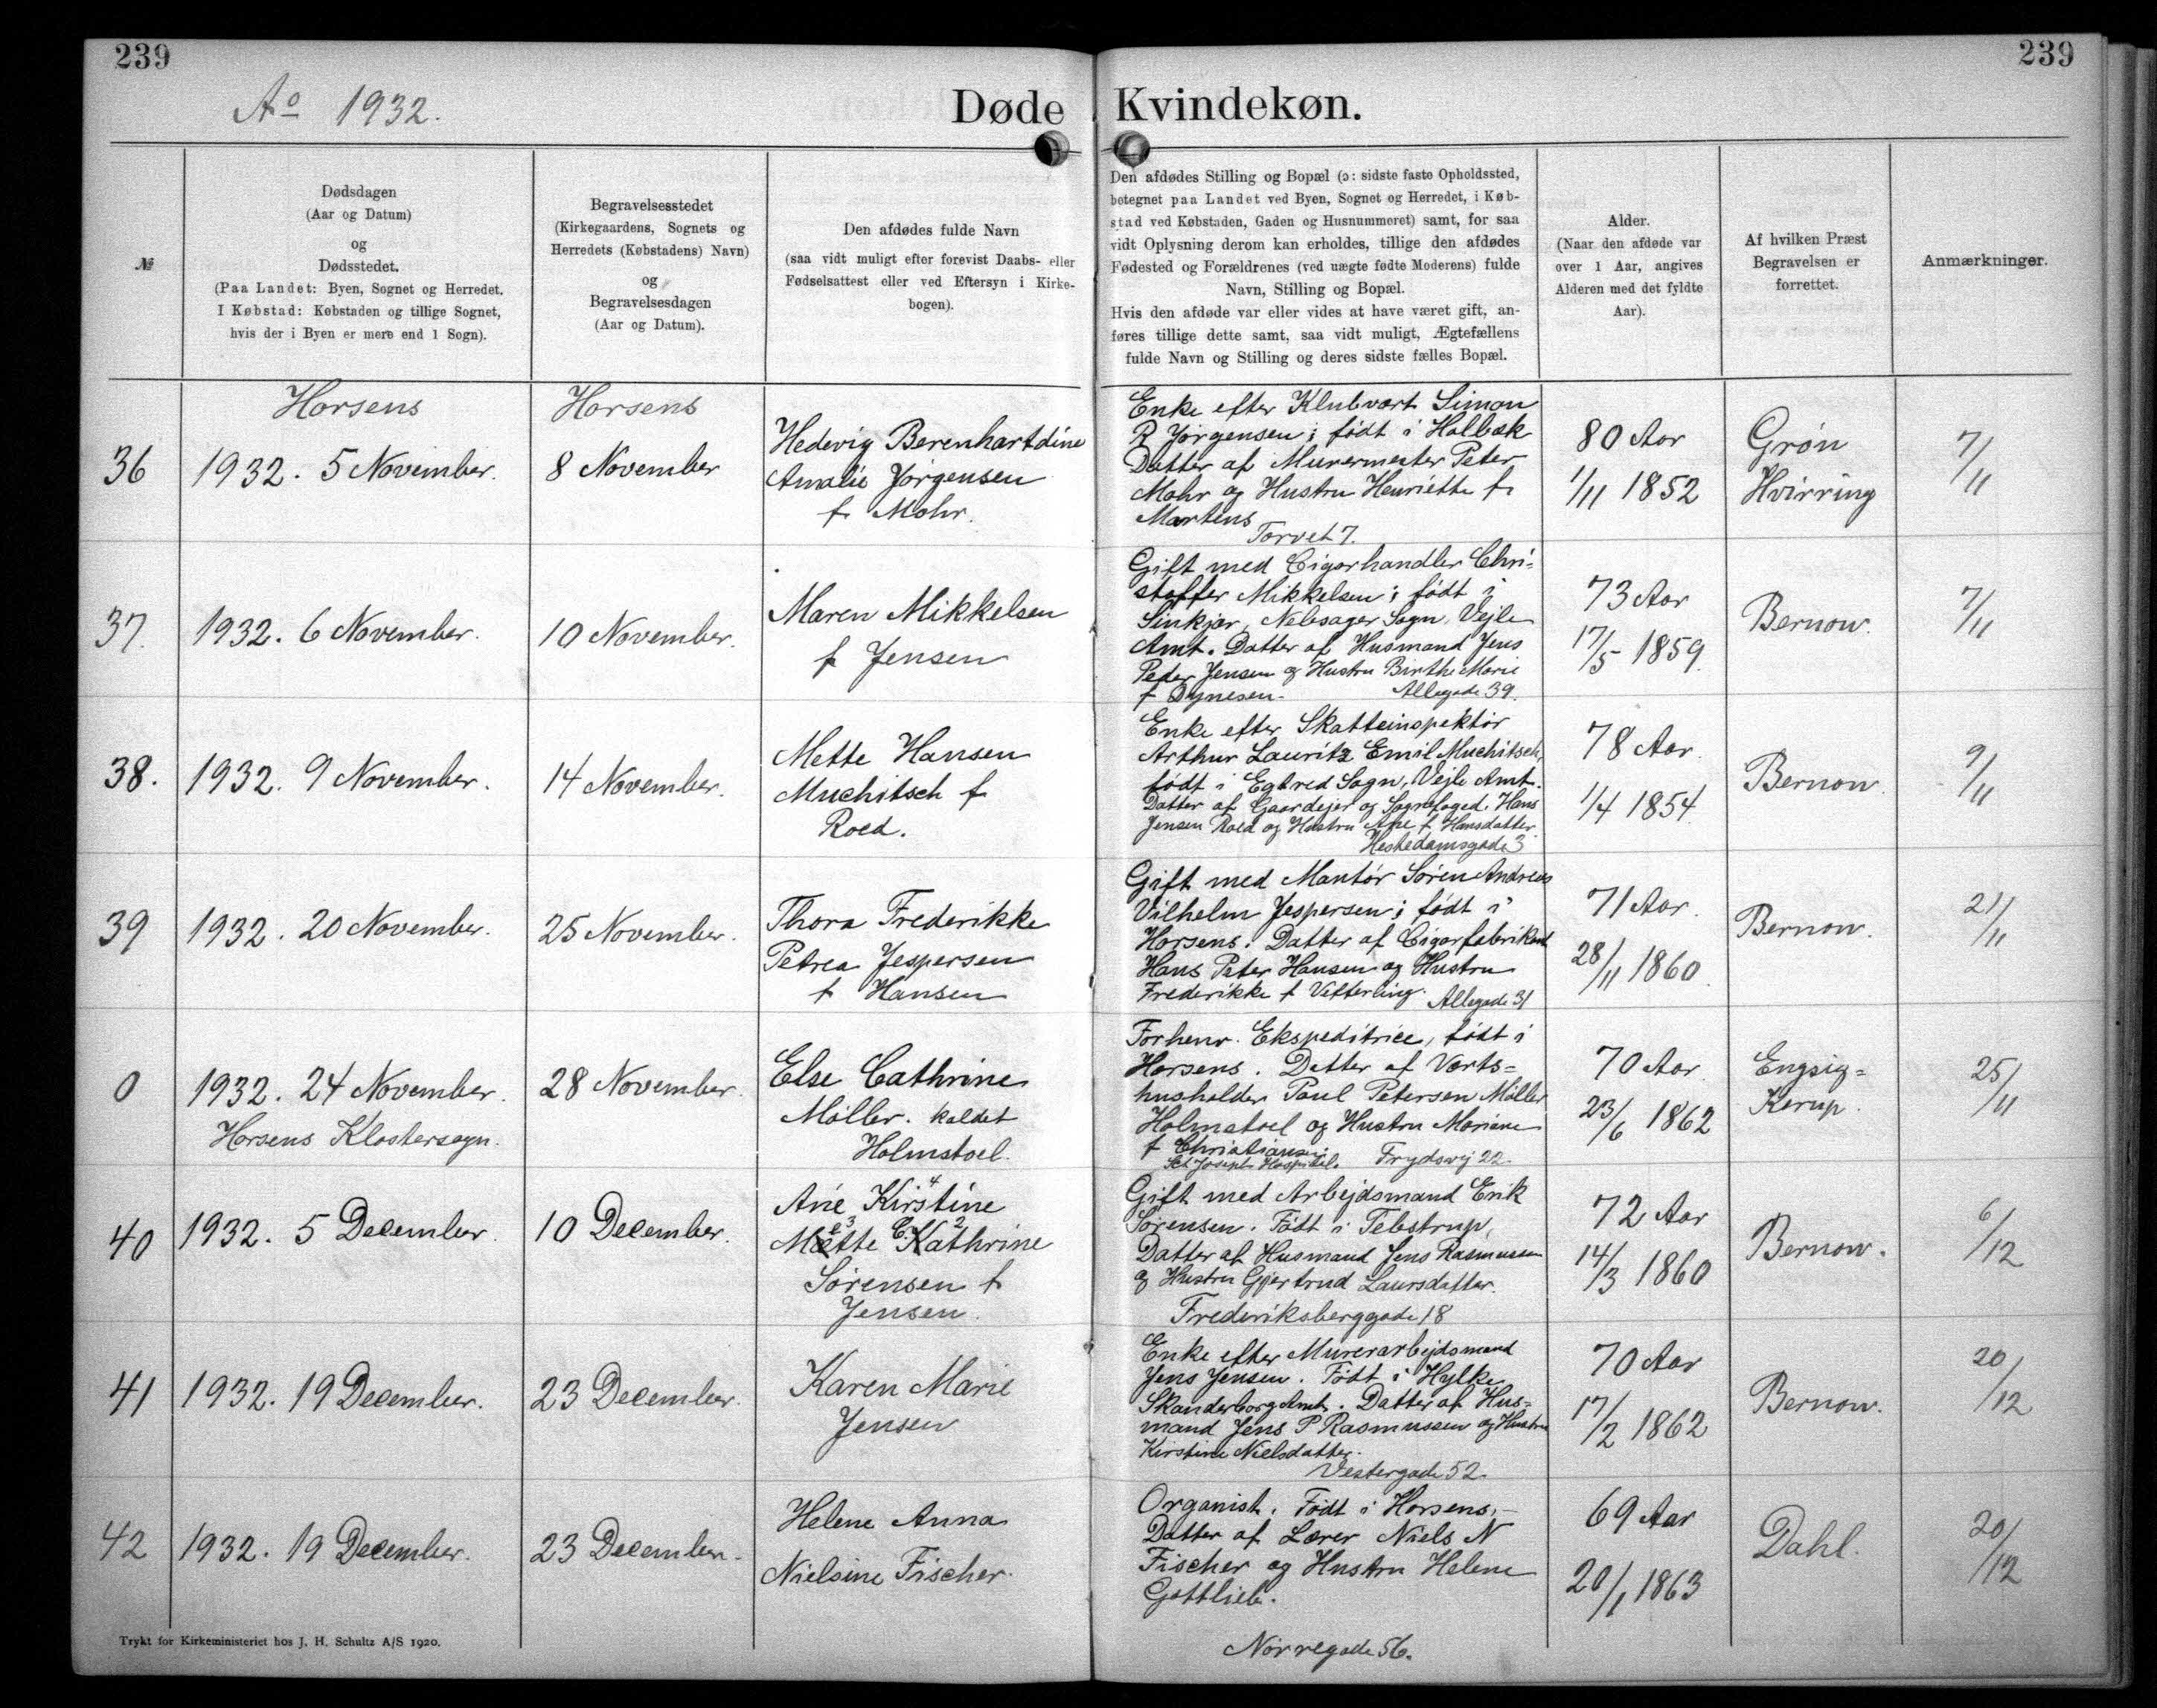 239
239
Ao 1932.
Døde
Kvindekøn.
№
Dødsdagen
(Aar og Datum)
og
Dødsstedet.
(Paa Landet: Byen, Sognet og Herredet.
I Købstad: Købstaden og tillige Sognet,
hvis der i Byen er mere end 1 Sogn).
Begravelsesstedet
(Kirkegaardens, Sognets og
Herredets (Købstadens) Navn)
og
Begravelsesdagen
(Aar og Datum).
Den afdødes fulde Navn
(saa vidt muligt efter forevist Daabs- eller
Fødselsattest eller ved Eftersyn i Kirke-
bogen).
Den afdødes Stilling og Bopæl (ɔ: sidste faste Opholdssted,
betegnet paa Landet ved Byen, Sognet og Herredet, i Køb-
stad ved Købstaden, Gaden og Husnummeret) samt, for saa
vidt Oplysning derom kan erholdes, tillige den afdødes
Fødested og Forældrenes (ved uægte fødte Moderens) fulde
Navn, Stilling og Bopæl.
Hvis den afdøde var eller vides at have været gift, an-
føres tillige dette samt, saa vidt muligt, Ægtefællens
fulde Navn og Stilling og deres sidste fælles Bopæl.
Alder.
(Naar den afdøde var
over 1 Aar, angives
Alderen med det fyldte
Aar).
Af hvilken Præst
Begravelsen er
forrettet.
Anmærkninger.
Horsens
Horsens
36
1932. 5 November.
8 November
Hedevig Berenhartdine
Amalie Jørgensen
f. Mohr.
Enke efter Klubvært Simon
R Jørgensen; født i Holbæk
Datter af Murermester Peter
Mohr og Hustru Henriette f.
Martens
Torvet 7.
80 Aar
1/11 1852
Grøn
Hvirring
7/11
37.
1932. 6 November.
10 November.
Maren Mikkelsen
f Jensen
Gift med Cigarhandler Chri-
stoffer Mikkelsen; født i
Sinkjær, Nebsager Sogn, Vejle
Amt. Datter af Husmand Jens
Peder Jensen og Hustru Birthe Marie
f Dynesen. Allegade 39.
73 Aar
17/5 1859.
Bernow.
7/11
38.
1932. 9 November.
14 November.
Mette Hansen
Muchitsch f
Roed.
Enke efter Skatteinspektør
Arthur Lauritz Emil Muchitsch,
født i Egtved Sogn, Vejle Amt.
Datter af Gaardejer og Sognefoged. Hans
Jensen Roed og Hustru Ane f. Hansdatter.
Hestedamsgade 3
78 Aar.
1/4 1854
Bernow
9/11
39
1932. 20 November.
25 November.
Thora Frederikke
Petrea Jespersen
f Hansen
Gift med Montør Søren Andreas
Vilhelm Jespersen; født i
Horsens. Datter af Cigarfabrikant
Hans Peter Hansen og Hustru
Frederikke f Vitterling. Allegade 31
71 Aar.
28/11 1860.
Bernow.
21/11
0
1932. 24 November.
Horsens Klostersogn.
28 November.
Else Cathrine
Møller. kaldet
Holmstoel.
Forhenv. Ekspeditrice, født i
Horsens. Datter af Værts-
husholder Poul Petersen Møller
Holmstoel og Hustru Mariane
f Christiansen.
Sct Josephs Hospital. Frydsvej 22.
70 Aar.
23/6 1862
Engsig-
Kerup.
25/11
40
1932. 5 December.
10 December.
Ane Kirstine 4
Mette 3 C.Kathrine 2
Sørensen f
Jensen.
Gift med Arbejdsmand Erik
Sørensen. Født i Tebstrup,
Datter af Husmand Jens Rasmussen
og Hustru Gjertrud Laursdatter.
Frederiksberggade 18
72 Aar
14/3 1860
Bernow.
6/12
41
1932. 19 December.
23 December.
Karen Marie
Jensen
Enke efter Murerarbejdsmand
Jens Jensen. Født i Hylke
Skanderborg Amt. Datter af Hus-
mand Jens P Rasmussen og Hustru
Kirstine Nielsdatter.
Vestergade 52.
70 Aar
17/2 1862
Bernow.
20/12
42
1932. 19 December.
23 December.
Helene Anna
Nielsine Fischer.
Organist. Født i Horsens,
Datter af Lærer Niels N
Fischer og Hustru Helene
Gottlieb.
Nørregade 56.
69 Aar
20/1 1863
Dahl.
20/12
Trykt for Kirkeministeriet hos J. H. Schultz A/S 1920.